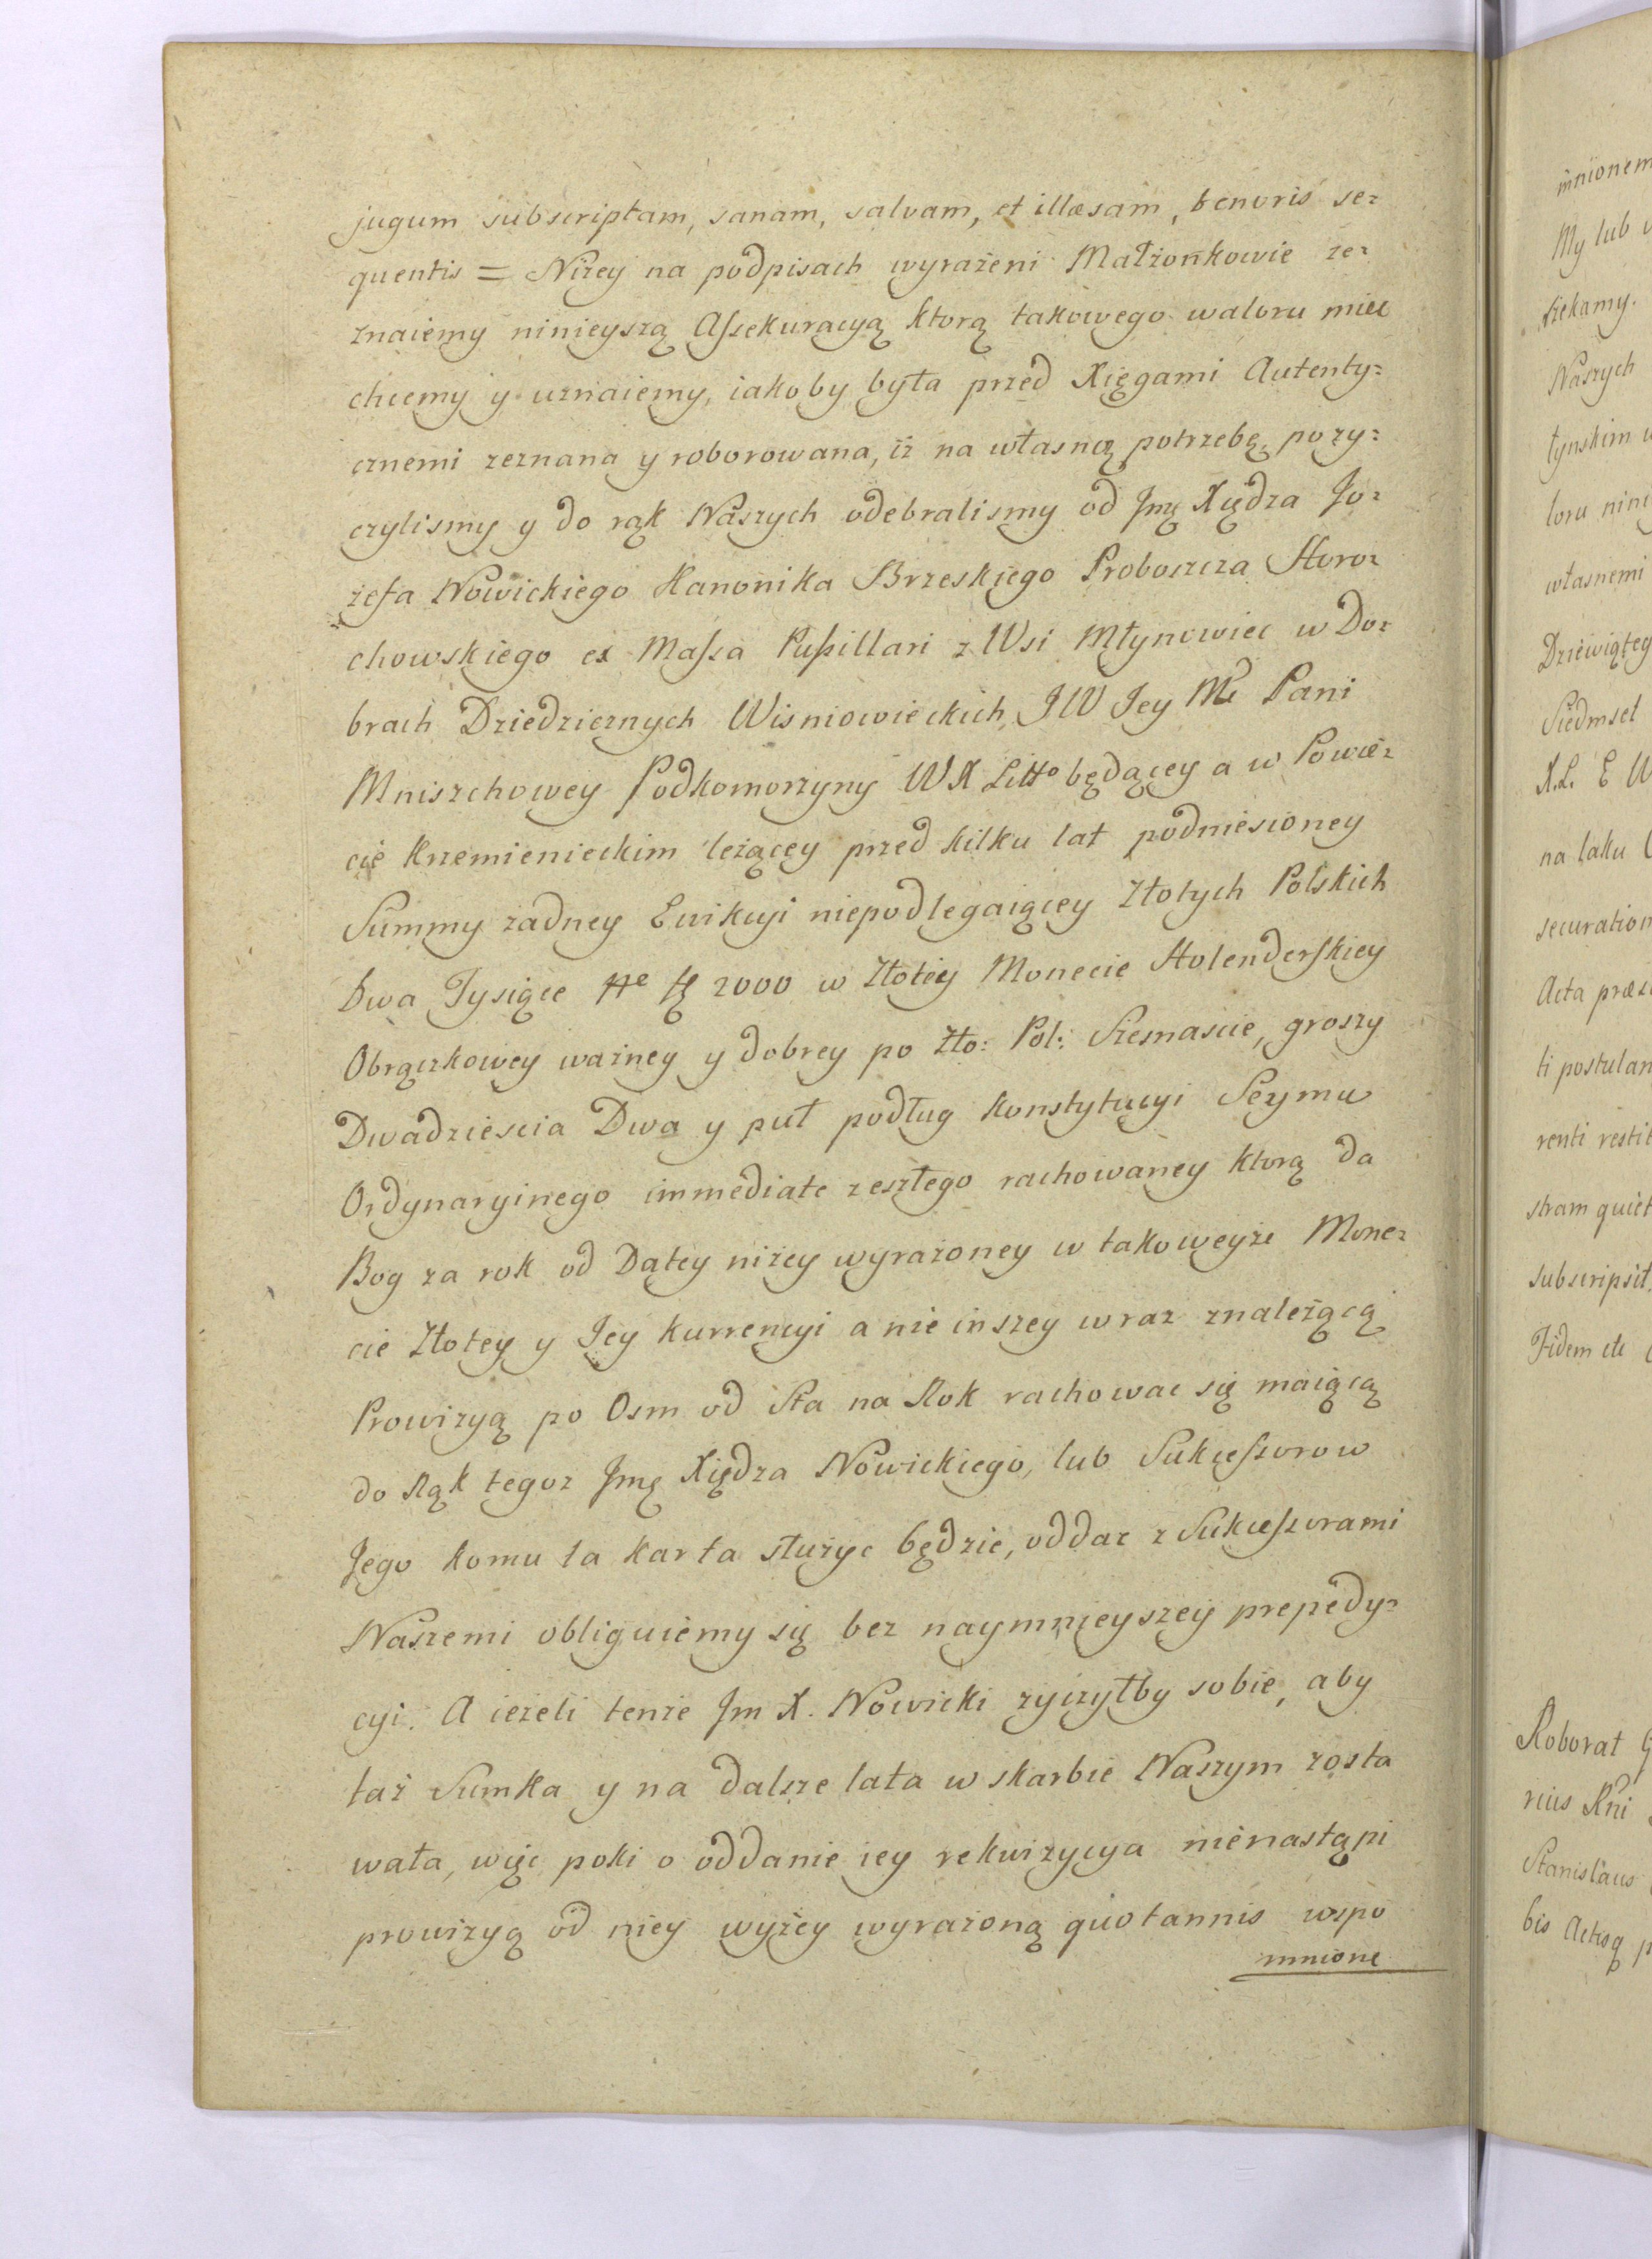 jugum subscriptam, sanam, salvam, et illæsam, tenoris se=
quentis = Niżey na podpisach wyrażeni Małżonkowie ze=
znaiemy ninieyszą Assekuracyą ktorą takowego waloru miec
chcemy y uznaiemy, iakoby była przed Xięgami Autenty=
cznemi zeznana y roborowana, iż na własną potrzebę pozy=
czylismy y do rąk Naszych odebralismy od Jmę Xiędza Jo=
zefa Nowickiego Kanonika Brzeskiego Proboszcza Horo=
chowskiego ex Massa Pupillari z Wsi Młynowiec w Do=
brach Dziedzicznych Wisniowieckich JW Jey Mć Pani
Mniszchowey Podkomorzyny WX Litto będącey a w Powie=
cie Krzemienieckim leżącey przed kilku lat podniesioney
Summy żadney Ewikcyi niepodlegaiącey Złotych Polskich
Dwa Tysiące 2000 w Złotey Monecie Holenderskiey
Obrączkowey ważney y dobrey po Zło: Pol: Szesnascie, groszy
Dwadziescia Dwa y puł podług Konstytucyi Seymu
Ordynaryinego immediate zeszłego rachowaney ktorą da
Bog za rok od Datey niżey wyrażoney w takoweyże Mone=
cie Złotey y Jey kurrencyi a nie inszey wraz znależącą
Prowizyą po Osm od Sta na Rok rachowac się maiącą
do Rąk tegoz Jmę Xiędza Nowickiego, lub Sukcessorow
Jego komu ta karta służyc będzie, oddac z Sukcessorami
Naszemi obliguiemy się bez naymnieyszey prepedy=
cyi. A ieżeli tenże Jm X. Nowicki zyczyłby sobie, aby
taż Sumka y na dalsze lata w skarbie Naszym zosta
wała, więc poki o oddanie iey rekwizycya nienastąpi
prowizyą od niey wyżey wyrażoną quotannis wspo
mnione
mnionem
My lub
rzekamy.
Naszych
tynskim
loru nini
własnemi
Dziewiąteg
Siedmset
X.L. E W
na taku
securation
Acta præs
ti postulan
renti restit
stram quiet
subscripsit.
Fidem etc
Roborat
rius Rñi
Stanislaus
bis Actisq